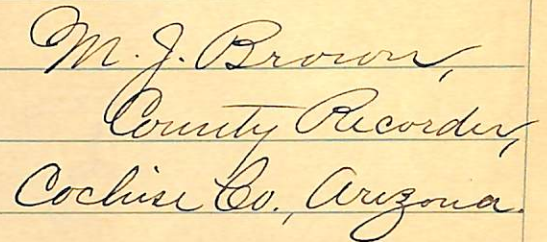 M. J. Brown,
County Recorder,
Cochise Co., Arizona.